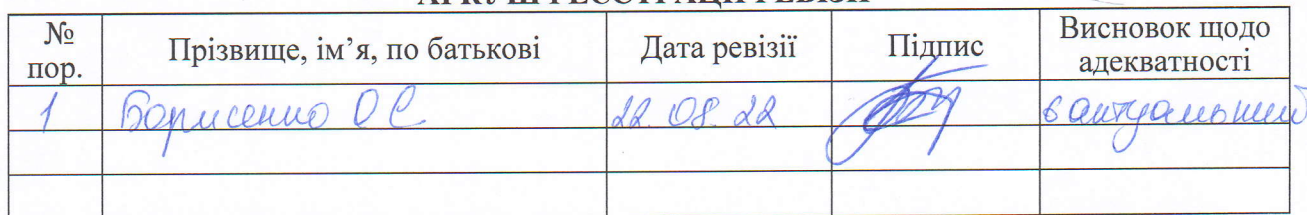 АРКУШ РЕЄСТРАЦІЇ РЕВІЗІЙ
№ пор. Прізвище, ім’я, по батькові Дата ревізії Підпис Висновок щодо адекватності
1 Борисенко О С 22.08.22 актуальний